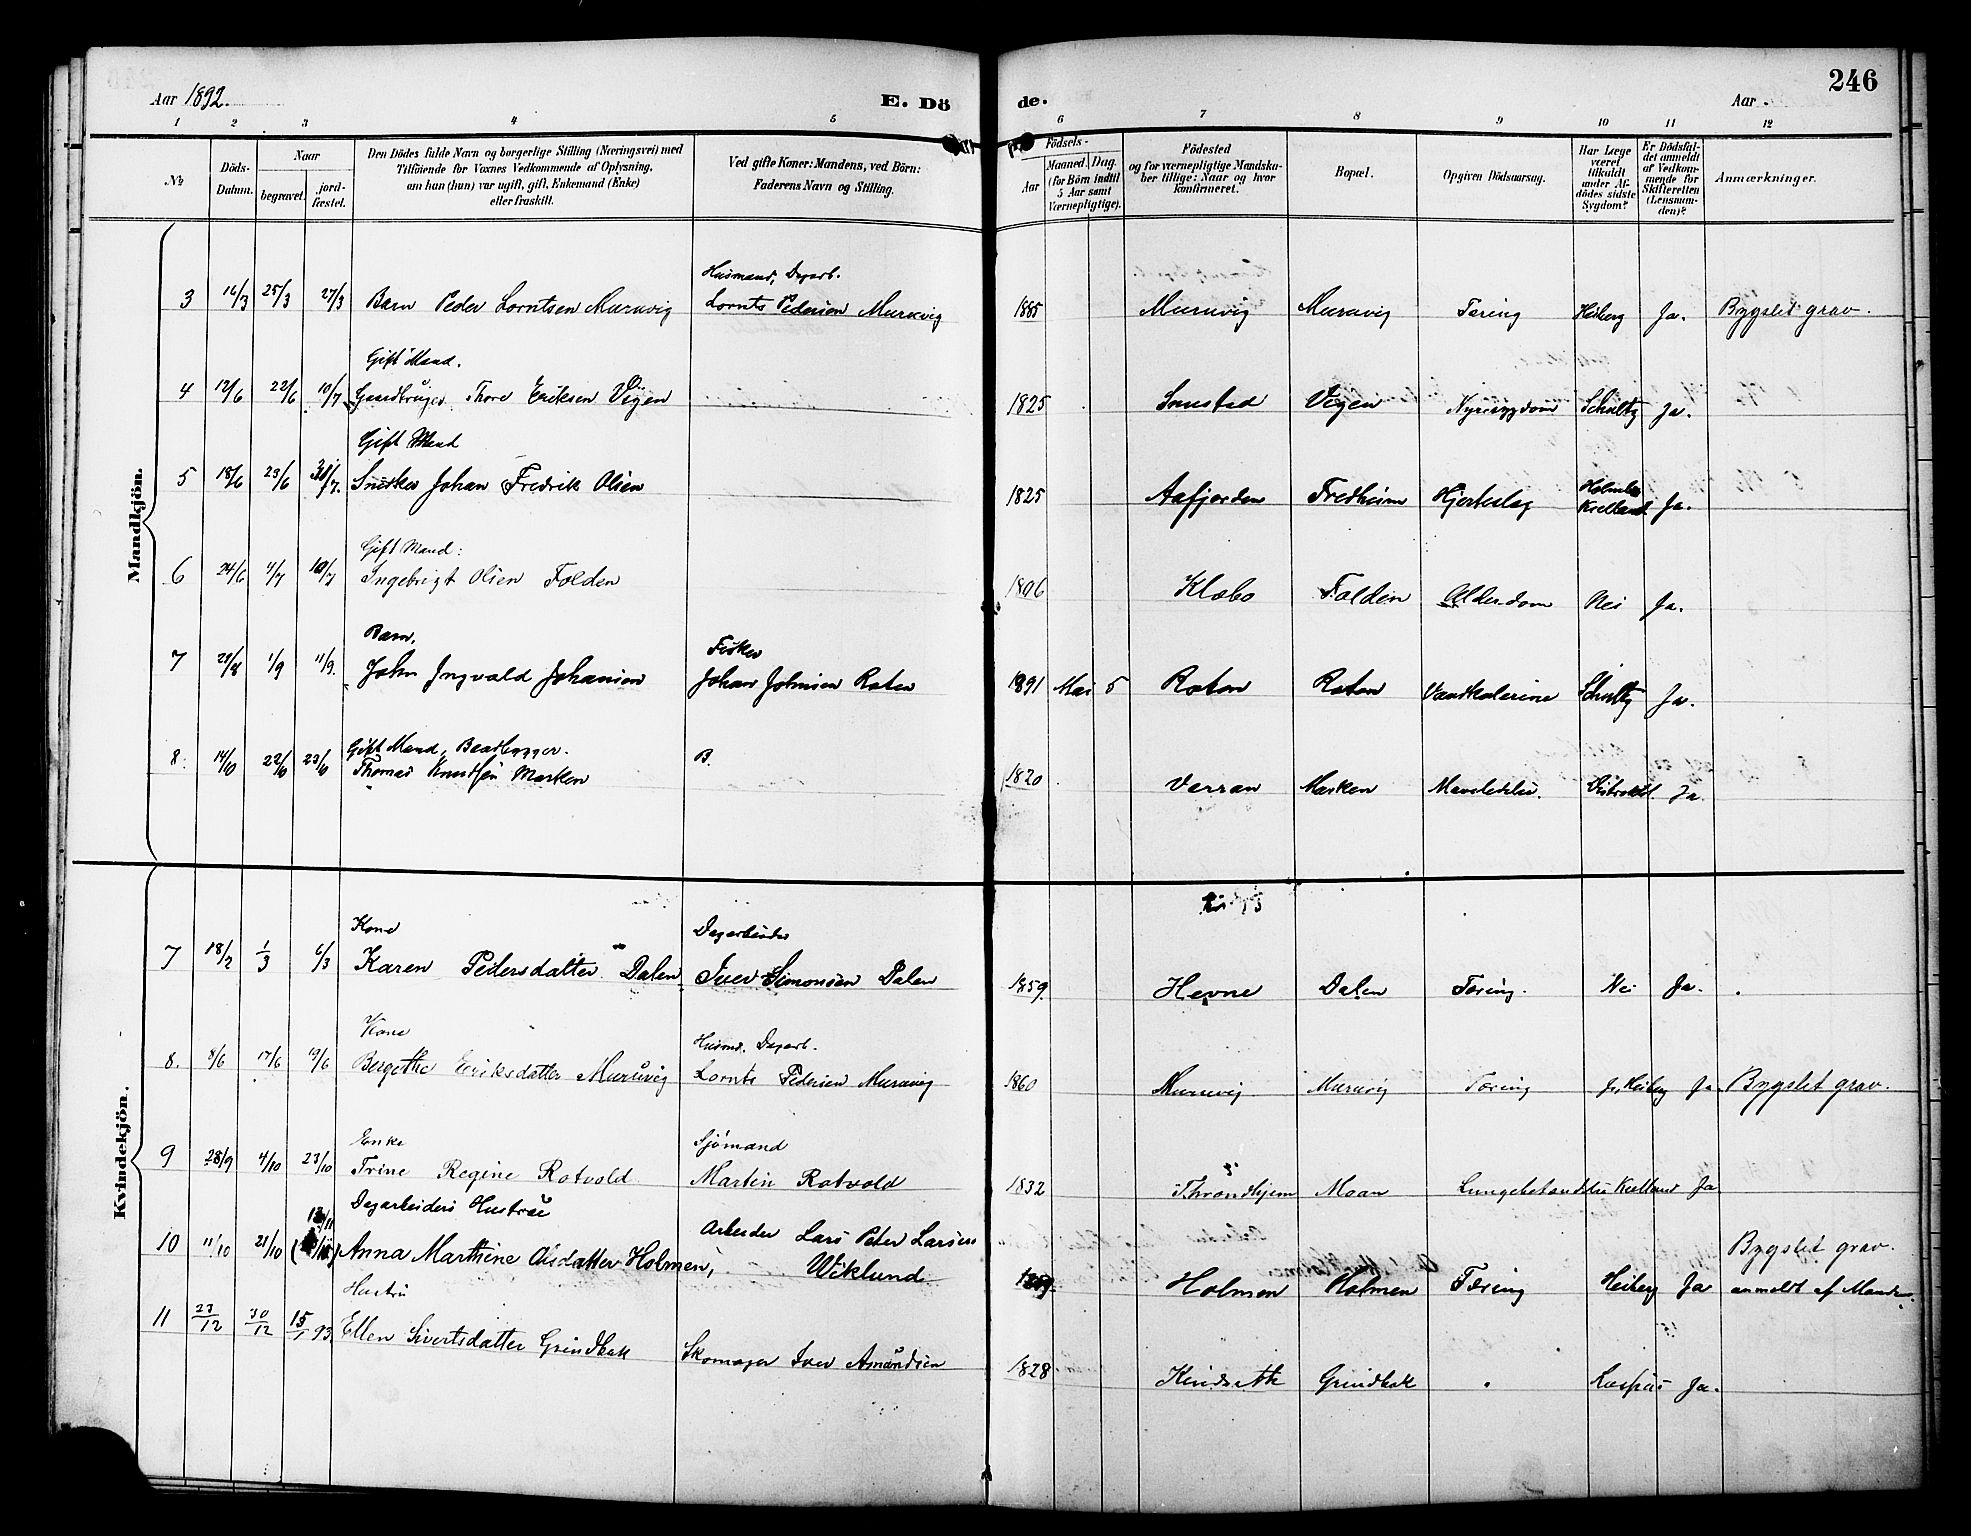 Aar 1892.
E. Dö
de.
Aar .
246
1 2 3 4 5 6 7 8 9 10 11 12
№
Döds-
Datum.
Naar
begravet.
jord-
fæstet.
Den Dödes fulde Navn og borgerlige Stilling (Næringsvei) med
Tilföiende for Voxnes Vedkommende af Oplysning,
om han (hun) var ugift, gift, Enkemand (Enke)
eller fraskilt.
Ved gifte Koner: Mandens, ved Börn:
Faderens Navn og Stilling.
Födsels-
Aar
Maaned. Dag.
(for Börn indtil
5 Aar samt
Værnepligtige).
Födested
og for værnepligtige Mandska-
ber tillige: Naar og hvor
konfirmeret.
Bopæl.
Opgiven Dödsaarsag.
Har Læge
været
tilkaldt
under Af-
dödes sidste
Sygdom?
Er Dödsfal-
det anmeldt
af Vedkom-
mende for
Skifteretten
(Lensman-
den)?
Anmærkninger.
Mandkjön.
Husmand, Dagarb.
3 16/3 25/3 27/3 Barn Peder Lorntsen Muruvig Lornts Pedersen Muruvig 1885 Muruvig Muruvig Tæring Heiberg Ja. Bygslet grav.
Gift Mand.
4 12/6 22/6 10/7 Gaardbruger Thore Eriksen Vigen 1825 Vigen Nyresygdom Schultz Ja.
Gift Mand
5 18/6 23/6 Snedker Johan Fredrik Olsen 1825 Aafjorden Fredheim Hjerteslag Kielland Ja.
Gift Mand:
6 24/6 4/7 10/7 Ingebrigt Olsen Folden 1806 Klæbo Folden Alderdom Nei Ja.
Barn.
Fisker
7 29/8 1/9 11/9. John Ingvald Johansen Johan Johnsen Roten 1891 Mai 5 Roten Roten Schultz Ja.
Gift Mand,
8. 14/10 22/10 23/10 Thomas Knudsen Marken B. 1820 Verran Marken Ja.
Kvindekjön.
Kone
Dagarbeider
7 18/2 1/3 6/3 Karen Pedersdatter Dalen Iver Simonsen Dalen 1859. Hevne Dalen Tæring. Nei Ja.
Kone
Husmd. Dagarb.
8. 8/6 17/6 19/6 Bergethe Eriksdatter Muruvig Lornts Pedersen Muruvig 1860 Muruvig Muruvig Tæring Heiberg Ja Bygslet grav.
Enke
Sjömand
9 28/9 4/10 23/10 Trine Regine Rotvold Martin Rotvold 1832 Throndhjem Moan Lungebetændelse Kielland Ja
Dagarbeiders Hustru
Arbeider Lars Peter Larsen
10 11/10 21/10 Anna Marthine Olsdatter Holmen, Wiklund Holmen Holmen Tæring Heiberg Ja
Bygslet grav.
anmeldt af Manden.
Hustru
11 23/12 30/12 15/1 93. Ellen Sivertsdatter Grindbak Skomager Iver Amundsen 1828 Grindbak Ja.